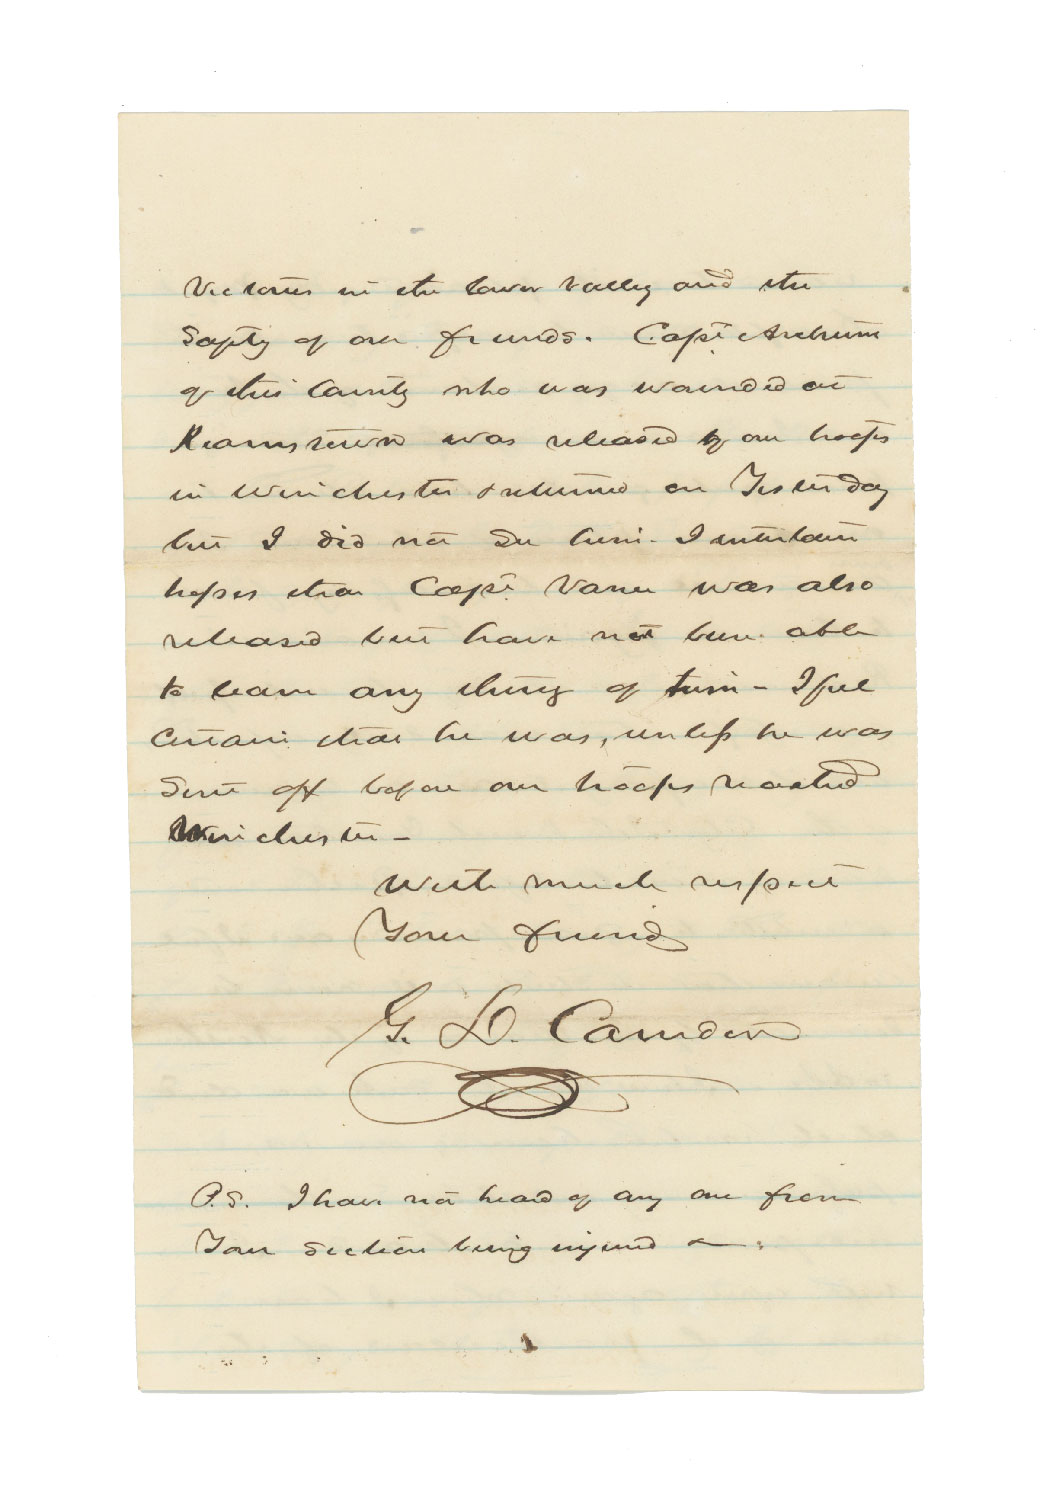 Victories in the lower Valley and the
Safty of our friends. Capt
of this County who was wounded at
Kearnstown was released by our troops
in Winchester & returned on Yesterday
but I did not See him. I entertain
hopes that Capt. Vance was also
released but have not been able
to learn any thing of him - I feel
Certain that he was, unless he was
Sent off before our troops reached
Winchester -
With much respect
Your friend
G. D. Camden
P.S. I have not heard of any one from
Your Section being injured